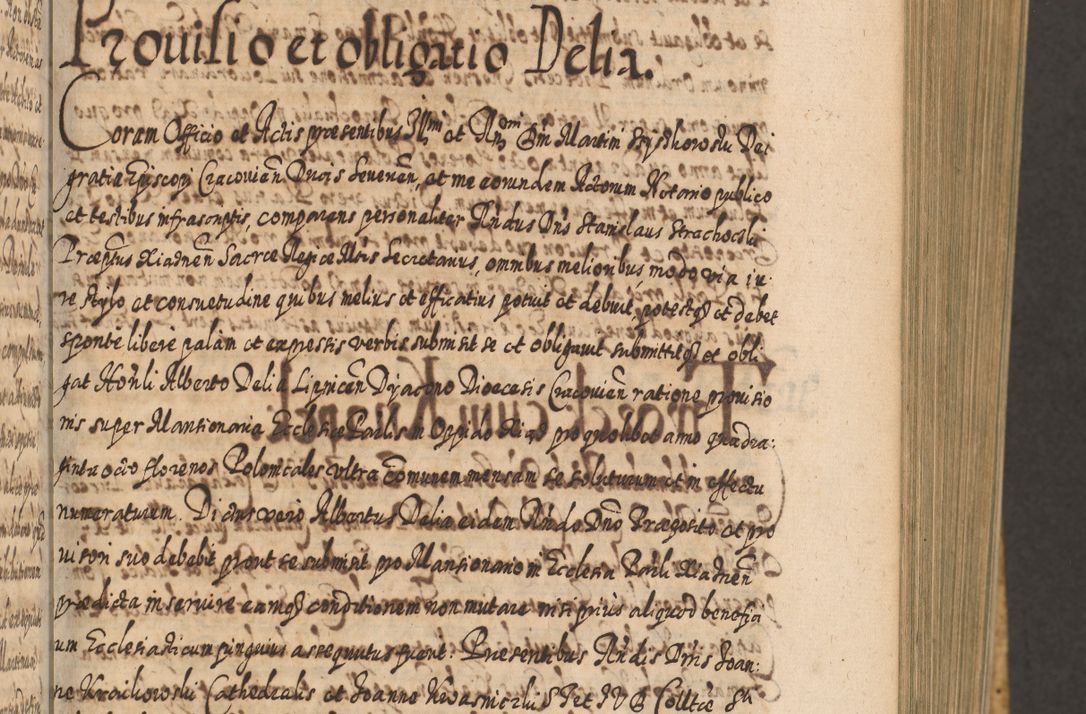 Prouisio et obligatio Delia.
Coram Officio et Actis præsentibus Illmi et Rndmi Dni Martini Szyszkowski Dei
gratia Episcopi Cracovien Ducis Severien, et me eorundem Actorum Notario publico
et testibus infrascriptis, comparens personaliter Rndus Dns Stanislaus Strachocski
Præptus Xiadnen Sacræ Regiæ Mtis Secretarius, omnibus melioribus modo via iu-
re stylo et consuetudine quibus melius et efficatius potuit et debuit, potestq et debet
sponte libere palam et expressis verbis submisit se et obligauit submittitq et obli-
gat Honli Alberto Delia Lipnicen Dyacono Dioecesis Cracovien ratione prouisio
nis super Mansionaria Ecclesiæ Parlis in Oppido Xiąż pro quolibet anno quadra-
ginta octo florenos Polonicales vltra comunem mensam se soluturum et in effectu
numeraturum. Dictus vero Albertus Delia eidem Rndo Dno Præposito et pro
uisori suo debebit prout se submisit pro Mansionario in Ecclesia Parli Xiadnen
prædicta inseruire eamq conditionem non mutare nisi prius aliquod benefici
um Ecclesiasticum pinguius assequutus fuerit. Præsentibus Rndis Dnis Joan-
ne Kraikowski Cathedralis et Joanne Kwasniczki S T et I V D Colltæ